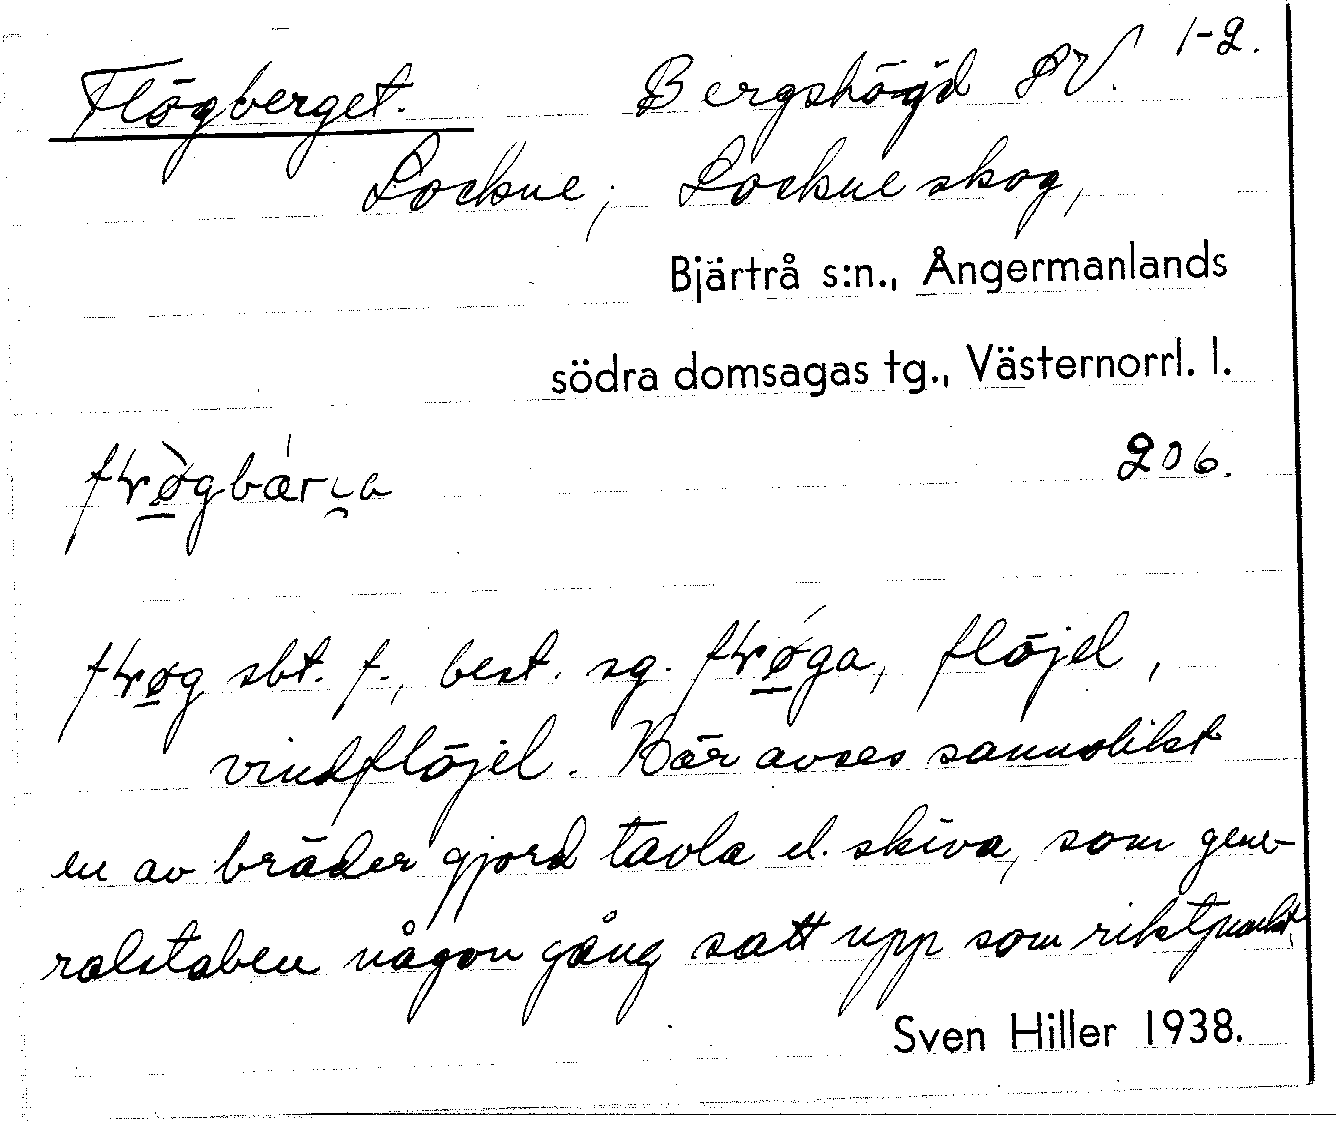 Flögberget. Bergshöjd SV. 1-2.
Lockne; Lockne skog,
Bjärtrå s:n., Ångermanlands
södra domsagas tg., Västernorrl. l.
206.
sbt. f., best. sg. flöjel,
vindflöjel. Här avses sannolikt
en av bräder gjord tavla el. skiva, som gene-
ralstaben någon gång satt upp som riktpunkt.
Sven Hiller 1938.